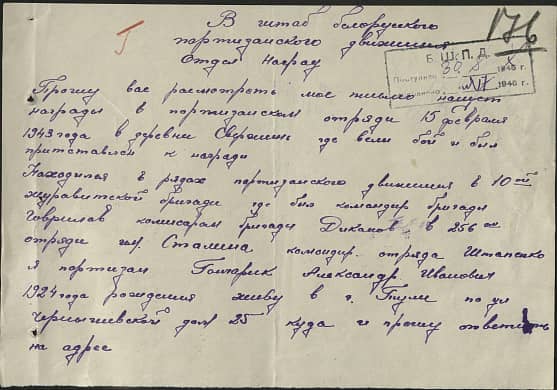 В штаб белоруского
партизанского движения
Отдел Наград
176
Б. Ш. П. Д.
Поступило 30 X 1946 г.
1946 г.
Прошу вас расмотреть мое письмо насчет
награды в партизанском отряди 15 февраля
1943 года в деревни Свержинь где вели бой и был
приставлен к награди
Находился в рядах партизанского движения в 10 ой
журавитской бригади где был командир бригади
Гаврилав комисарам бригады Диканов в 256 ом
отряди им. Сталина командир. отряда Штапенко
я партизан Гончарик Александр. Иванович
1924 года рождения живу в г. Туле по ул
Чернышевской дом 25 куда и прошу ответить
на адрес